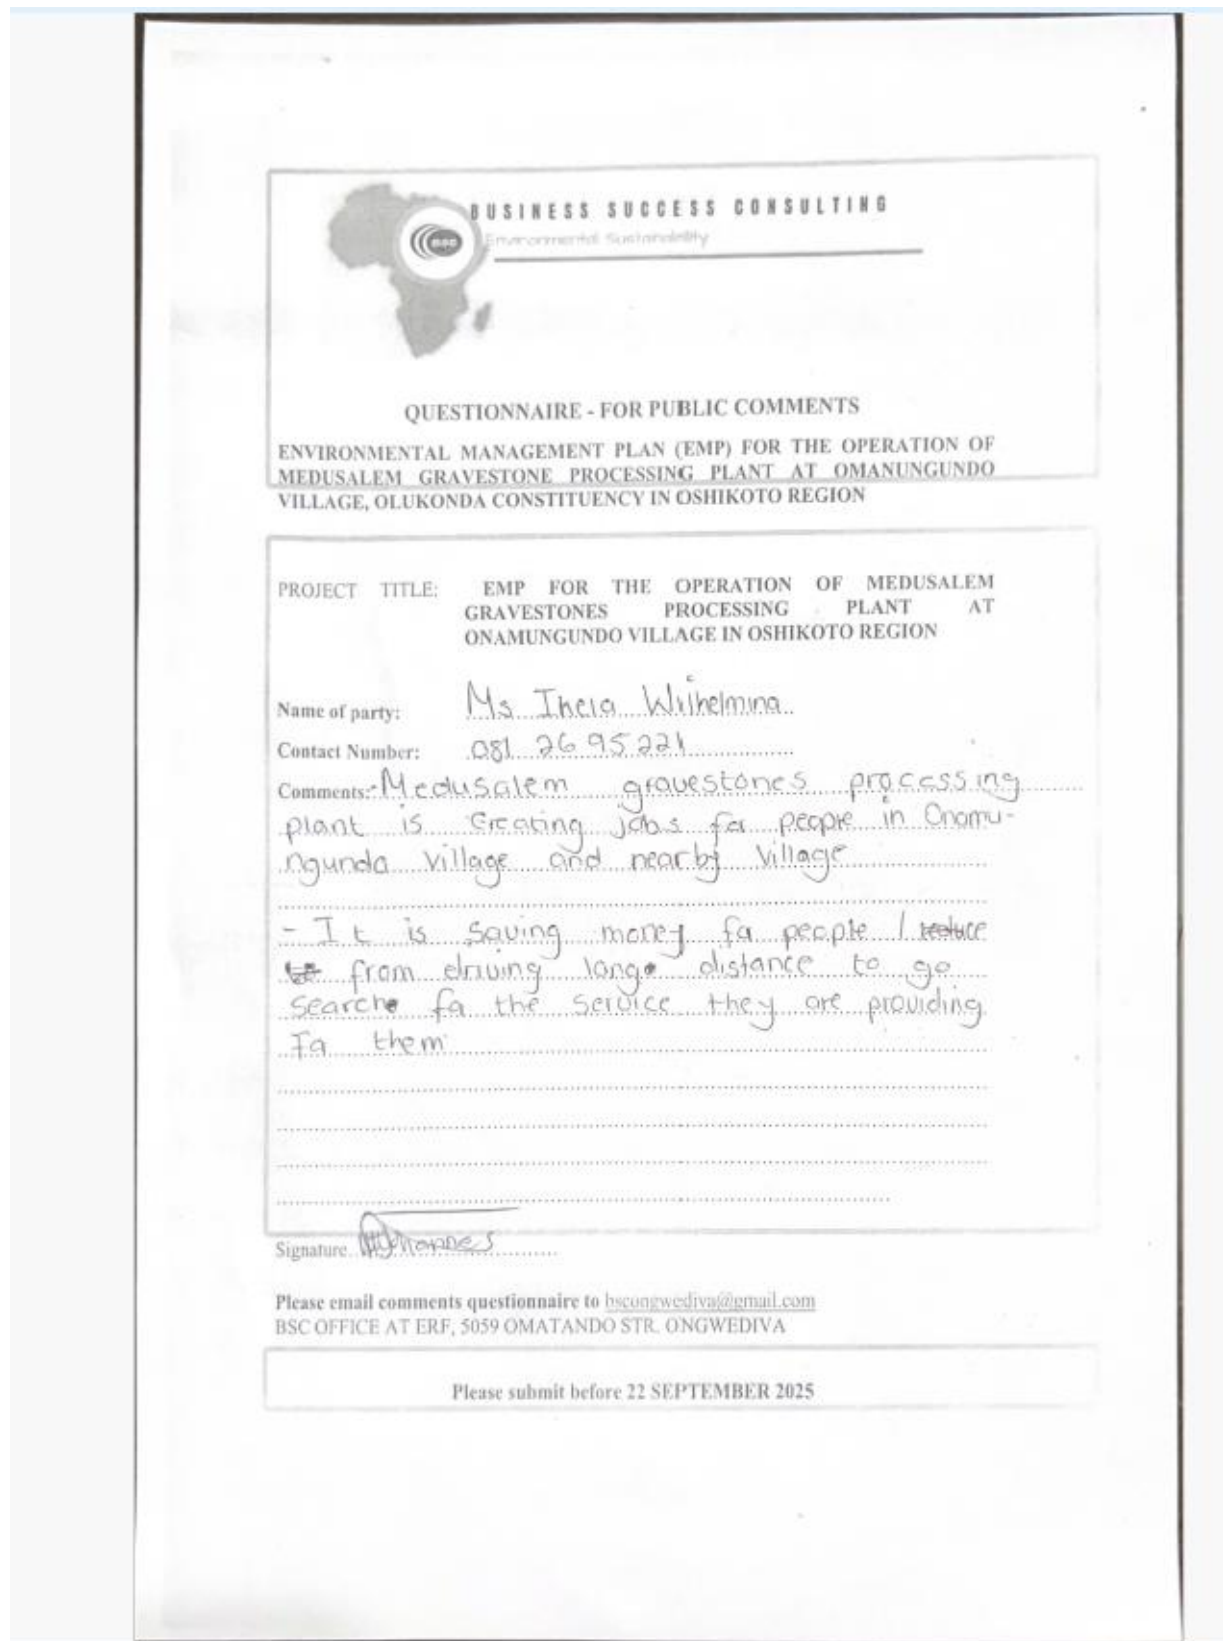 BUSINESS SUCCESS CONSULTING
Environmental Sustainability
QUESTIONNAIRE - FOR PUBLIC COMMENTS
ENVIRONMENTAL MANAGEMENT PLAN (EMP) FOR THE OPERATION OF
MEDUSALEM GRAVESTONE PROCESSING PLANT AT OMANUNGUNDO
VILLAGE, OLUKONDA CONSTITUENCY IN OSHIKOTO REGION
PROJECT TITLE: EMP FOR THE OPERATION OF MEDUSALEM
GRAVESTONES PROCESSING PLANT AT
ONAMUNGUNDO VILLAGE IN OSHIKOTO REGION
Name of party: Ms Wilhelmina
Contact Number: 081 26 95 221
Comments:- Medusalem gravestones processing
plant is Creating jobs for people in Onamu-
ngunda Village and nearby Village
- It is Saving money fa people / reduce
from driving long distance to go
search fa the service they are providing
Fa them
Signature
Please email comments questionnaire to bscongwediva@gmail.com
BSC OFFICE AT ERF, 5059 OMATANDO STR. ONGWEDIVA
Please submit before 22 SEPTEMBER 2025